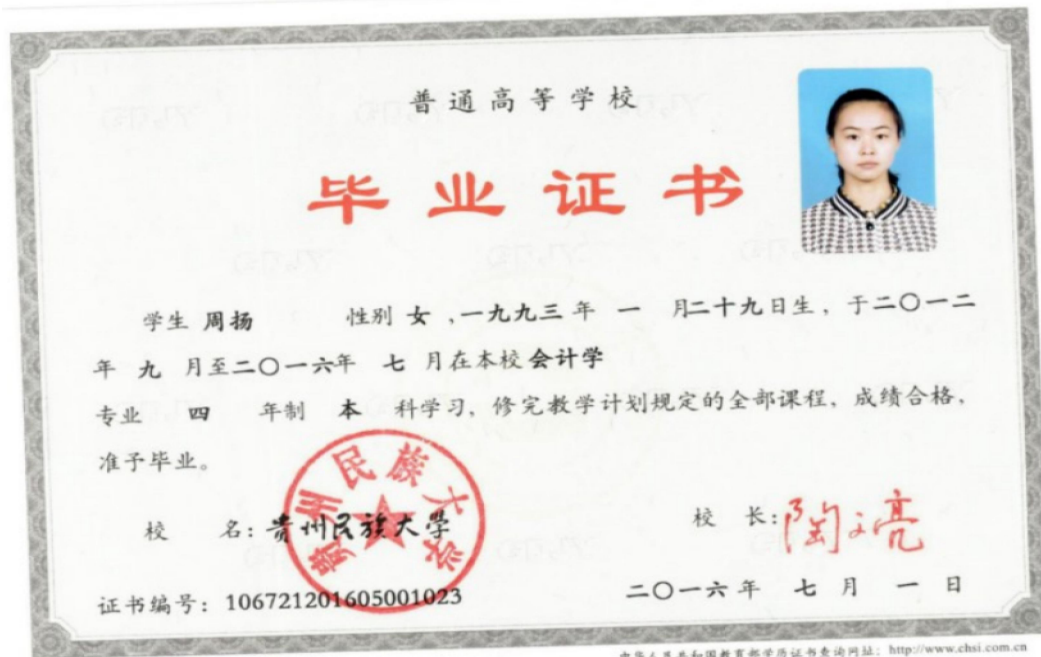 普通高等学校
毕业证书
学生 周扬 性别 女 ,一九九三 年 一 月二十九日生，于二〇一二
年 九 月至二〇一六年 七 月在本校 会计学
专业 四 年制 本 科学习，修完教学计划规定的全部课程，成绩合格，
准予毕业。
贵州民族大学
校 名：贵州民族大学 校 长：陶文亮
证书编号：106721201605001023 二〇一六 年 七 月 一 日
中华人民共和国教育部学历证书查询网址：http://www.chsi.com.cn